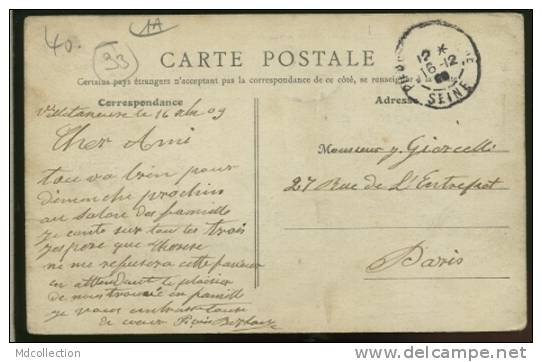 40.
1A
93
CARTE POSTALE
Certains pays étrangers n'acceptant pas la correspondance de ce côté, se renseigner à la
Correspondance
Adresse
12 *
16-12
09
SEINE
Villetaneuse le 16 09
Cher Ami
tou va bien pour
dimenche prochin
au Salon des famille
je conte sur tou les trois
Jespere que
ne me refusera cette
en attendant le plaisir
de nous trouvé en famille
je vous
de coeur
Monsieur y. Giorcelli
27 Rue de L'Entrepot
Paris
Mdcollection
delcampe.net